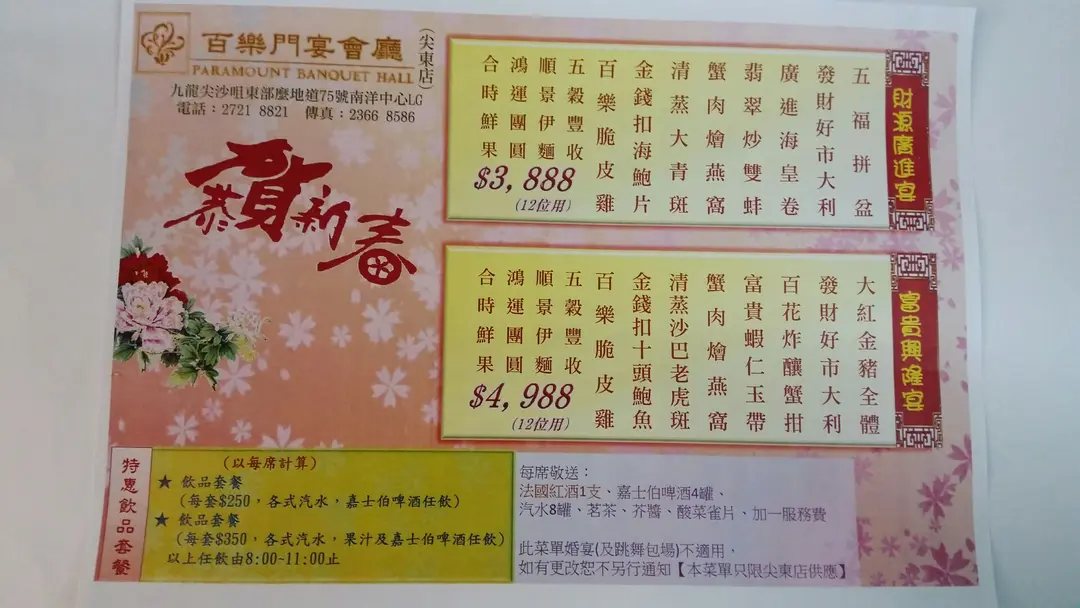 百樂門宴會廳
(尖東店)
PARAMOUNT BANQUET HALL
九龍尖沙咀東部麼地道75號南洋中心LG
電話：2721 8821 傳真：2366 8586
恭賀新春
財源廣進宴
五福拼盆
發財好市大利
廣進海皇卷
翡翠炒雙蚌
蟹肉燴燕窩
清蒸大青斑
金錢扣海鮑片
百樂脆皮雞
五穀豐收
順景伊麵
鴻運團圓
合時鮮果
$3,888
(12位用)
富貴興隆宴
大紅金豬全體
發財好市大利
百花炸釀蟹拑
富貴蝦仁玉帶
蟹肉燴燕窩
清蒸沙巴老虎斑
金錢扣十頭鮑魚
百樂脆皮雞
五穀豐收
順景伊麵
鴻運團圓
合時鮮果
$4,988
(12位用)
特惠飲品套餐
(以每席計算)
★ 飲品套餐
(每套$250，各式汽水，嘉士伯啤酒任飲)
★ 飲品套餐
(每套$350，各式汽水，果汁及嘉士伯啤酒任飲)
以上任飲由8:00~11:00止
每席敬送：
法國紅酒1支、嘉士伯啤酒4罐、
汽水8罐、茗茶、芥醬、酸菜雀片、加一服務費
此菜單婚宴(及跳舞包場)不適用，
如有更改恕不另行通知【本菜單只限尖東店供應】